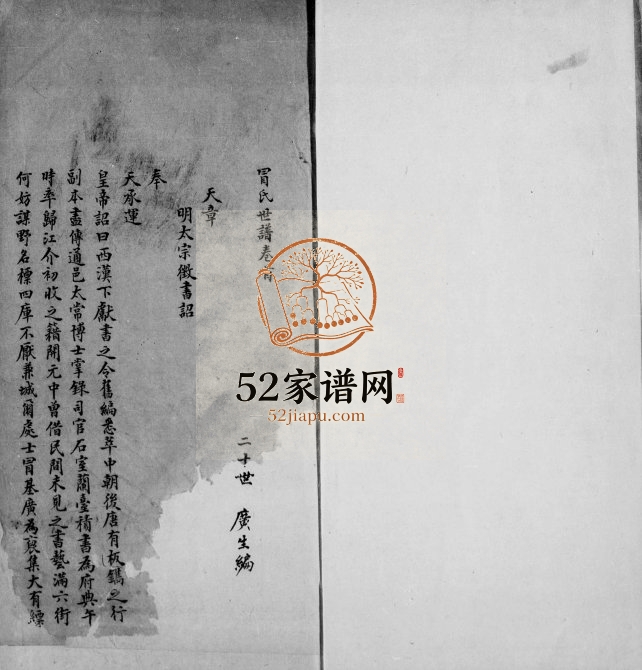 冒氏世譜卷首
天章
明太宗徵書詔
二十世 廣生編
奉
天承運
皇帝詔曰西漢下獻書之令舊編悉萃中朝後唐有板鐫之行
副本盡傳通邑太常博士掌錄司官石室蘭臺積書為府典午
時率歸江介初收之籍開元中曾借民間未見之書藝滿六街
何妨謀野名標四庫不厭兼城爾處士冒基廣為裒集大有縹
52家谱网
52jiapu.com